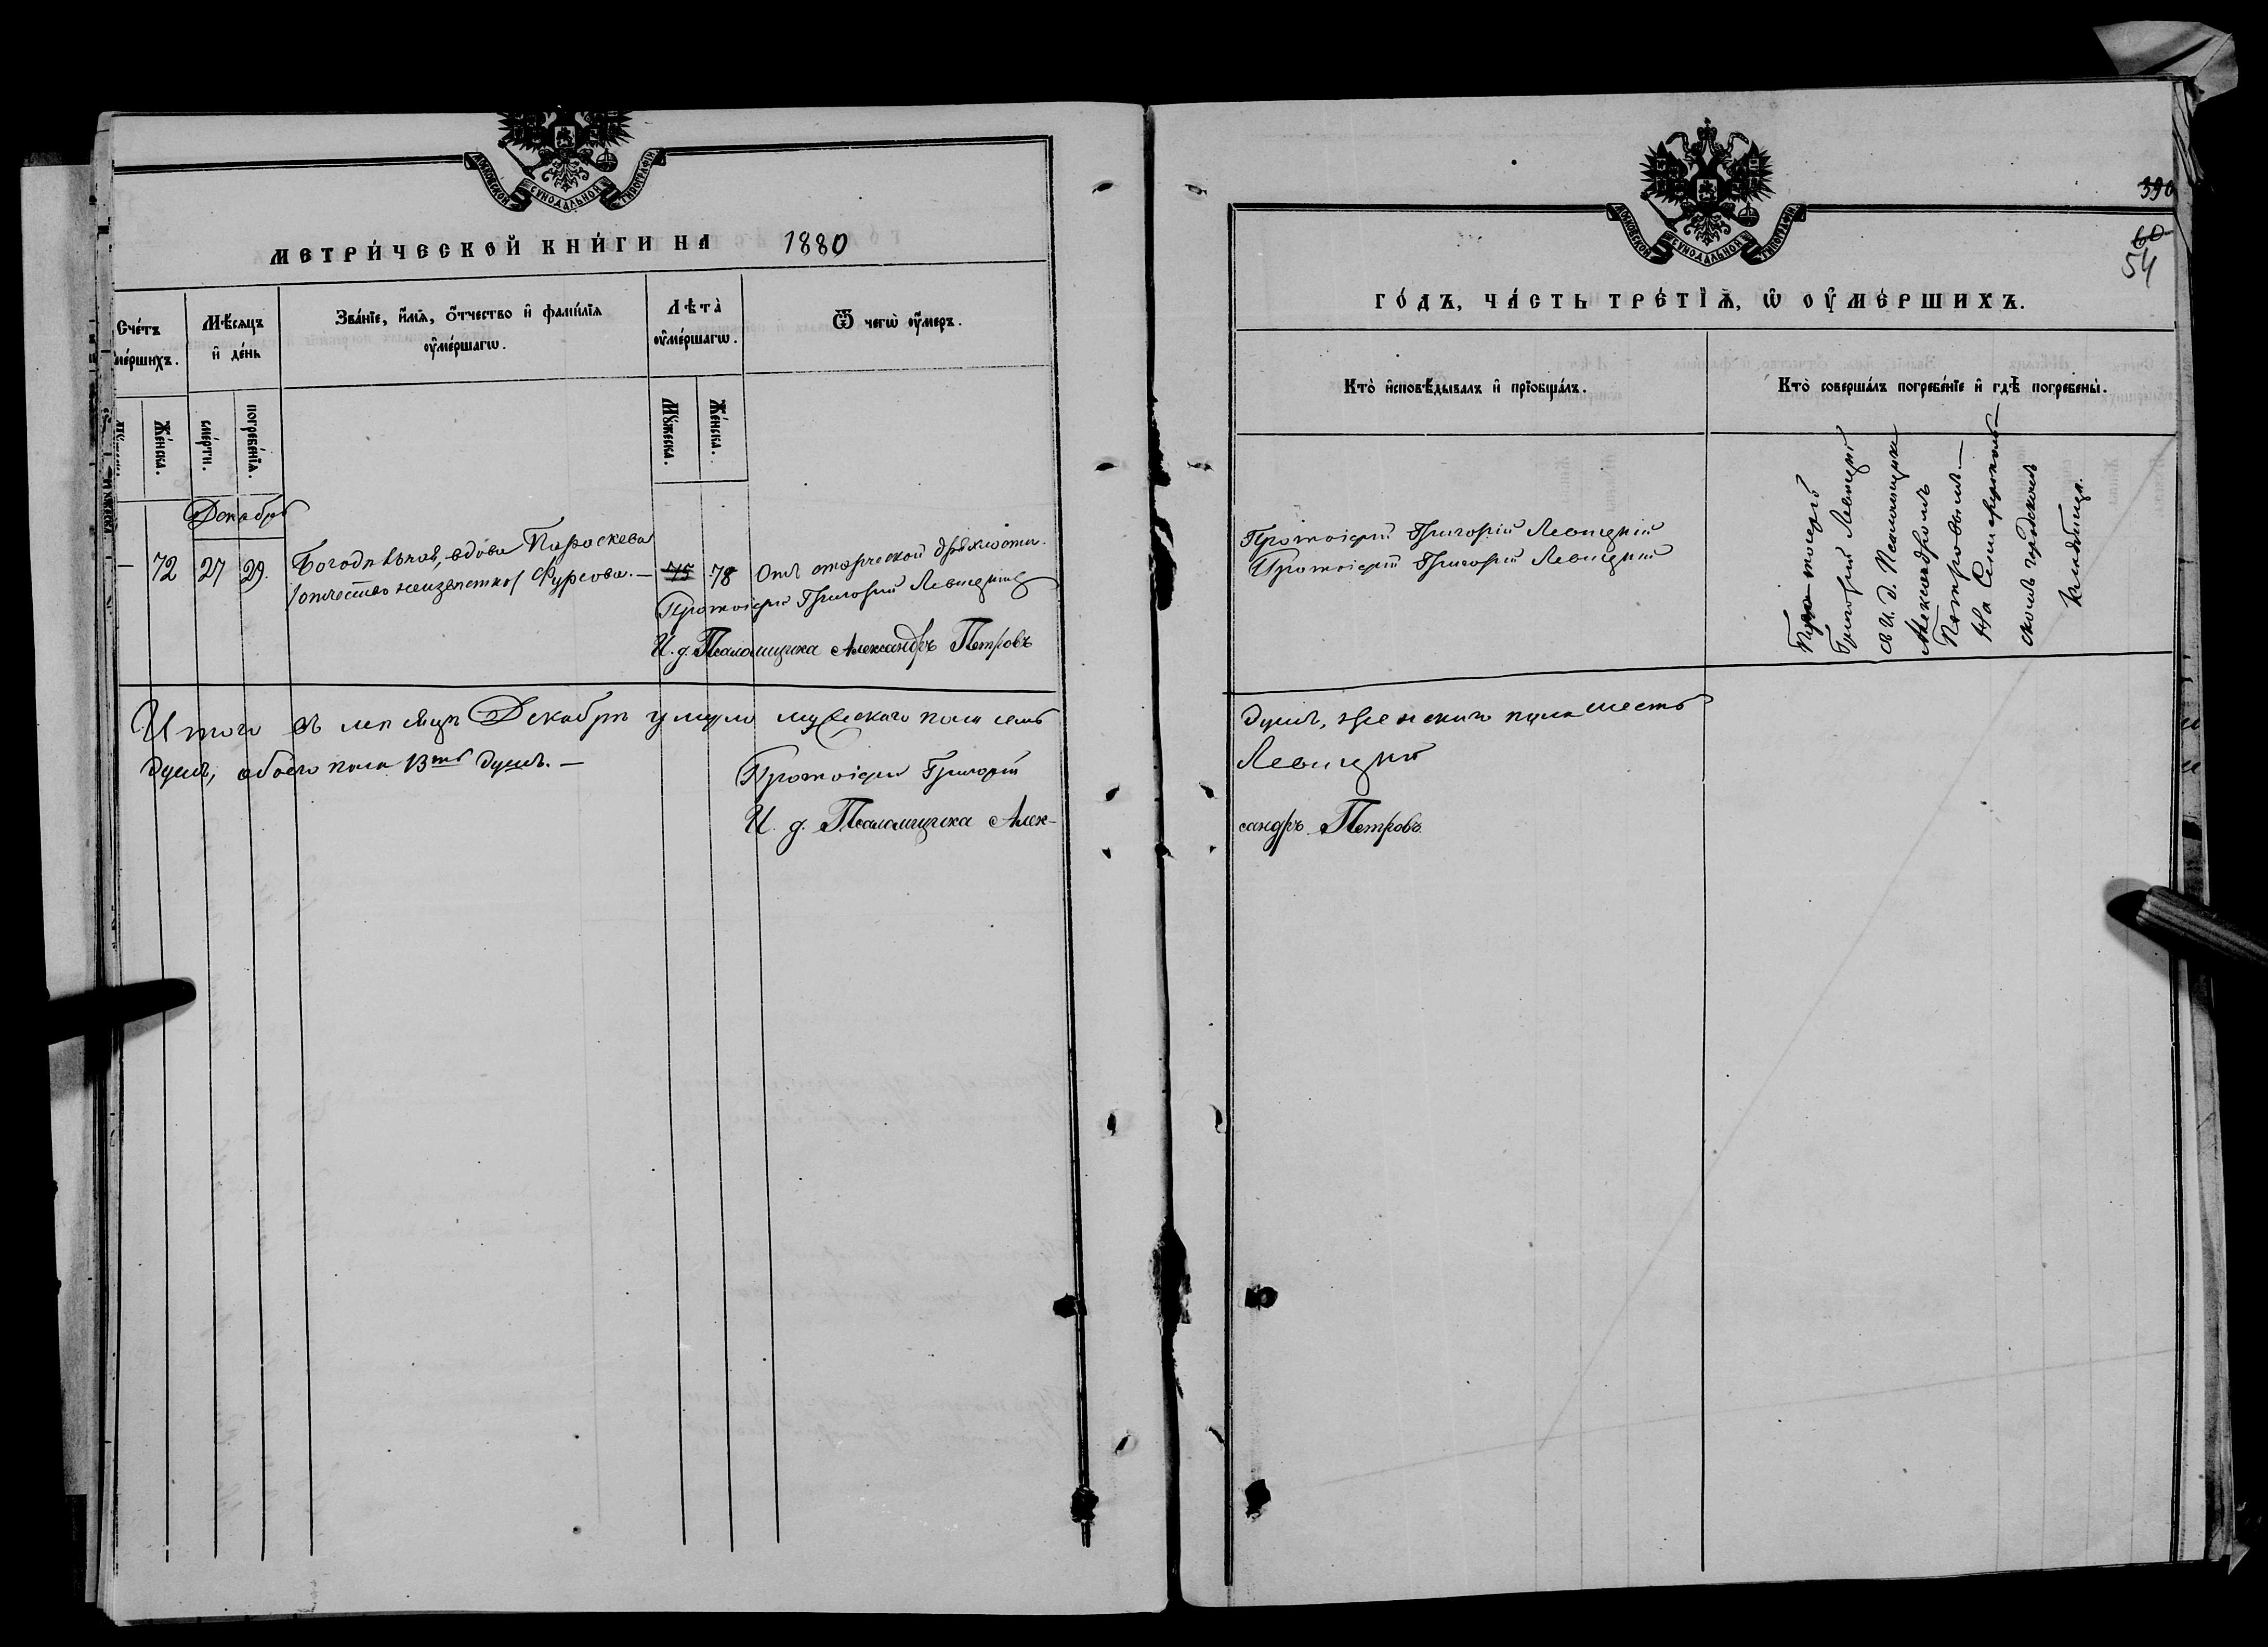 МОСКОВСКОЙ СѴНОДАЛЬНОЙ ТИПОГРАФІИ
МЕТРИ́ЧЕСКОЙ КНИ́ГИ НА 1880
Сче́тъ
ме́ршихъ.
Же́нска.
Мѣ́сяцъ
и҆ де́нь
сме́рти.
погребе́нїѧ.
Зва́нїе, и҆́мѧ, ѻ҆́тчество и҆ фами́лїѧ
ᲂу҆ме́ршагѡ.
Лѣта̀
ᲂу҆ме́ршагѡ.
Мꙋ́жеска.
Же́нска.
Ѿ чегѡ̀ ᲂу҆́меръ.
Декабрь
— 72 27 29.
Богодѣльная, вдова Параскева
/отчество неизвестно/ Фурсова. —
75 78
Отъ старческой дряхлости.
Протоіерей Григорій Левицкій
И. д. Псаломщика Александръ Петровъ
Итого въ месяце Декабре умерло мужескаго пола семь
душъ, обоего пола 13ть душъ. —
Протоіерей Григорій
И. д. Псаломщика Алек-
МОСКОВСКОЙ СѴНОДАЛЬНОЙ ТИПОГРАФІИ
390
60
54
ГО́ДЪ, ЧА́СТЬ ТРЕ́ТЇѦ, Ѡ҆ ᲂУ҆МЕ́РШИХЪ.
Кто̀ и҆сповѣ́дывалъ и҆ прїобща́лъ.
Кто̀ соверша́лъ погребе́нїе и҆ гдѣ̀ погребены̀.
Протоіерей Григорій Левицкій
Протоіерей Григорій Левицкій
Григорій Левицкій
съ и. д. Псаломщика
Александромъ
Петровымъ. —
скомъ городскомъ
кладбище.
душъ, женскаго пола шесть
Левицкій
сандръ Петровъ.